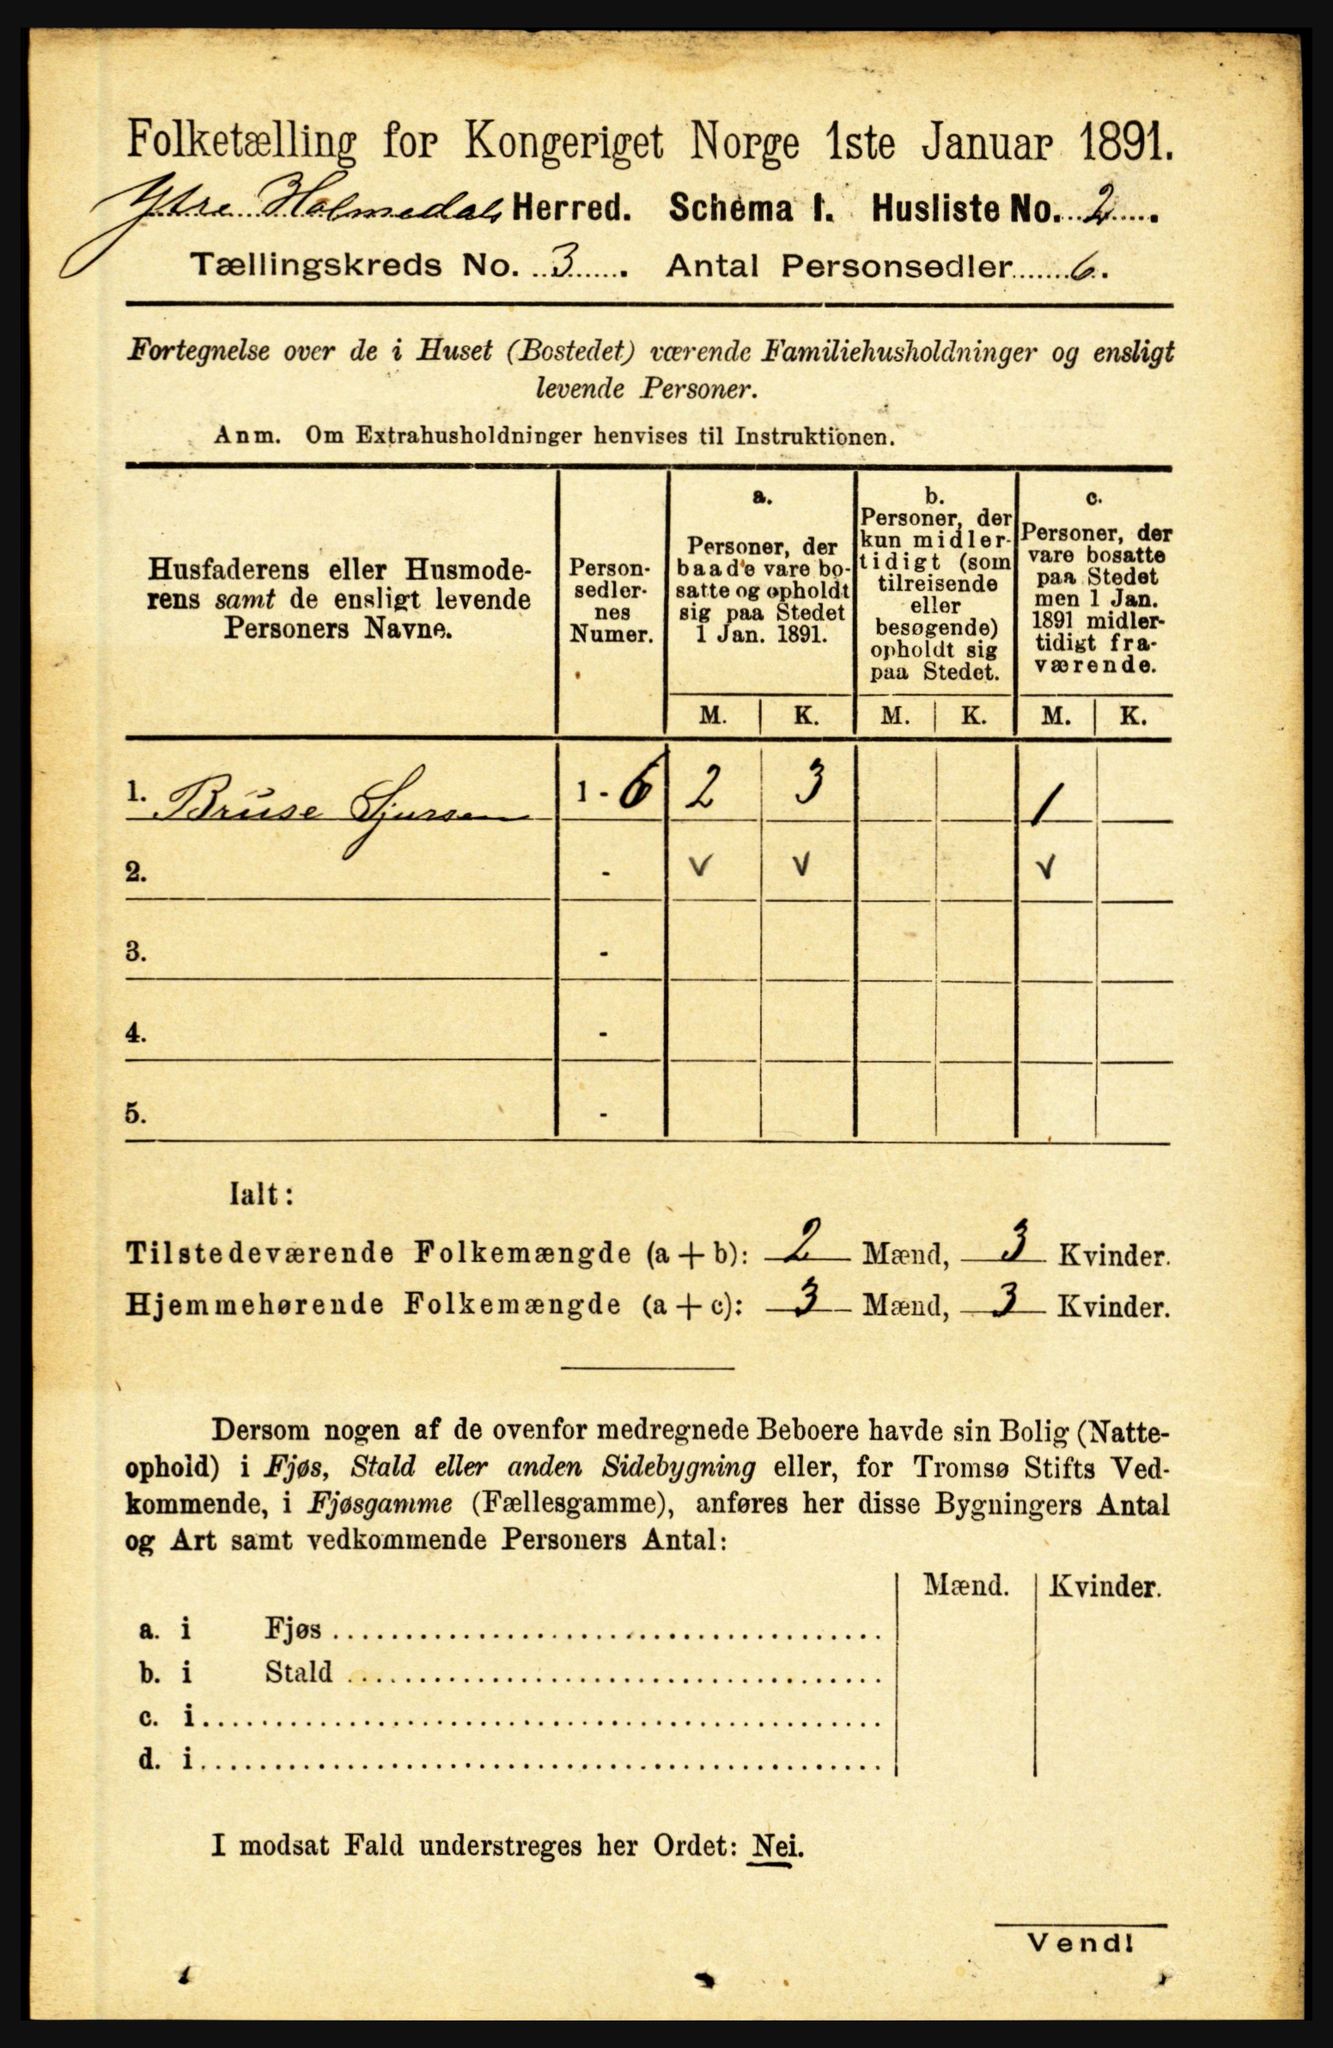 Folketælling for Kongeriget Norge 1ste Januar 1891.
Ytre Holmedals Herred. Schema 1. Husliste No. 2.
Tællingskreds No. 3. Antal Personsedler 6.
Fortegnelse over de i Huset (Bostedet) værende Familiehusholdninger og ensligt
levende Personer.
Anm. Om Extrahusholdninger henvises til Instruktionen.
Husfaderens eller Husmode-
rens samt de ensligt levende
Personers Navne.
Person-
sedler-
nes
Numer.
a.
Personer, der
baade vare bo-
satte og opholdt
sig paa Stedet
1 Jan. 1891.
b.
Personer, der
kun midler-
tidigt (som
tilreisende
eller
besøgende)
opholdt sig
paa Stedet.
c.
Personer, der
vare bosatte
paa Stedet
men 1 Jan.
1891 midler-
tidigt fra-
værende.
M. K. M. K. M. K.
1. Bruse Sjursen 1 - 6 2 3 1
2. - v v v
3. -
4. -
5. -
Ialt:
Tilstedeværende Folkemængde (a + b): 2 Mænd, 3 Kvinder.
Hjemmehørende Folkemængde (a + c): 3 Mænd, 3 Kvinder.
Dersom nogen af de ovenfor medregnede Beboere havde sin Bolig (Natte-
ophold) i Fjøs, Stald eller anden Sidebygning eller, for Tromsø Stifts Ved-
kommende, i Fjøsgamme (Fællesgamme), anføres her disse Bygningers Antal
og Art samt vedkommende Personers Antal:
Mænd. Kvinder.
a. i Fjøs
b. i Stald
c. i
d. i
I modsat Fald understreges her Ordet: Nei.
Vend!